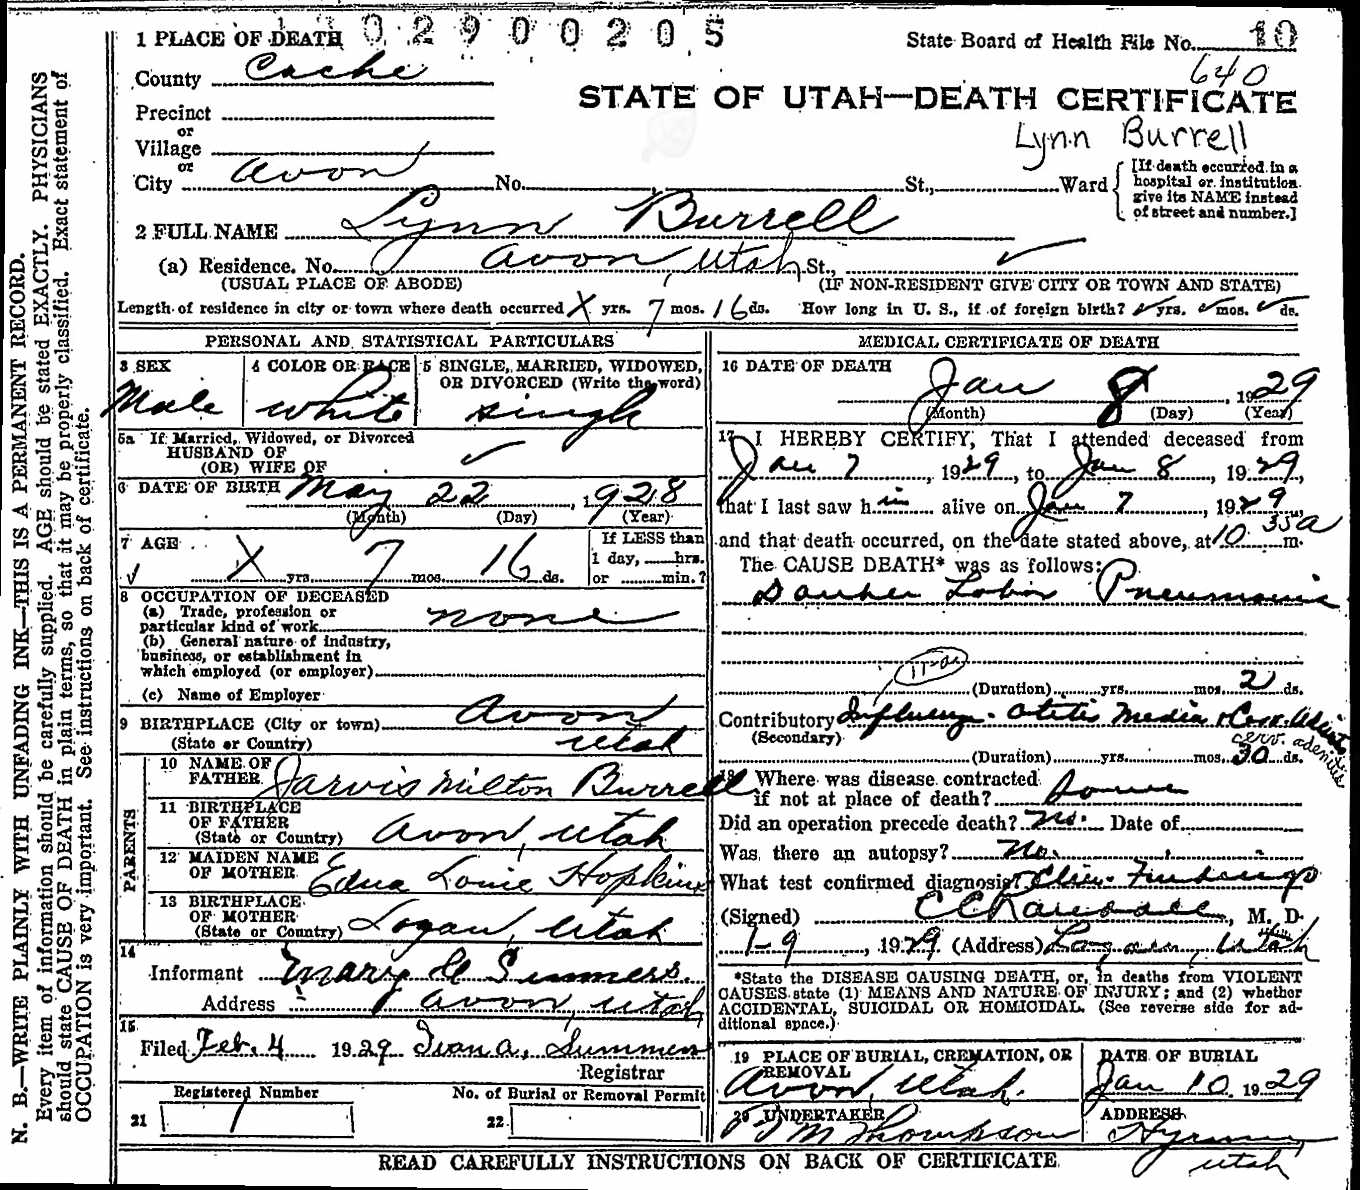 1 PLACE OF DEATH 02900205 State Board of Health File No. 10
County Cache 640
STATE OF UTAH—DEATH CERTIFICATE
Precinct
or
Village
or
City Avon No. St., Ward
Lynn Burrell
[If death occurred in a
hospital or institution
give its NAME instead
of street and number.]
2 FULL NAME Lynn Burrell
(a) Residence. No. Avon, Utah St.,
(USUAL PLACE OF ABODE) (IF NON-RESIDENT GIVE CITY OR TOWN AND STATE)
Length of residence in city or town where death occurred X yrs. 7 mos. 16 ds. How long in U. S., if of foreign birth? ✓ yrs. ✓ mos. ✓ ds.
PERSONAL AND STATISTICAL PARTICULARS
3 SEX Male
4 COLOR OR RACE white
5 SINGLE, MARRIED, WIDOWED,
OR DIVORCED (Write the word)
single
5a If Married, Widowed, or Divorced
HUSBAND OF
(OR) WIFE OF ✓
6 DATE OF BIRTH May 22, 1928
(Month) (Day) (Year)
7 AGE X yrs. 7 mos. 16 ds.
If LESS than
1 day, hrs.
or min.?
8 OCCUPATION OF DECEASED
(a) Trade, profession or
particular kind of work none
(b) General nature of industry,
business, or establishment in
which employed (or employer)
(c) Name of Employer
9 BIRTHPLACE (City or town) Avon
(State or Country) Utah
PARENTS
10 NAME OF
FATHER Jarvis Milton Burrell
11 BIRTHPLACE
OF FATHER
(State or Country) Avon, Utah
12 MAIDEN NAME
OF MOTHER Edna Louie Hopkins
13 BIRTHPLACE
OF MOTHER
(State or Country) Logan, Utah
14
Informant Mary Summers
Address Avon, Utah
15
Filed Feb. 4 1929 Ivan A. Summers
Registrar
Registered Number No. of Burial or Removal Permit
21 1 22
MEDICAL CERTIFICATE OF DEATH
16 DATE OF DEATH
Jan 8, 1929
(Month) (Day) (Year)
17 I HEREBY CERTIFY, That I attended deceased from
Jan 7, 1929, to Jan 8, 1929,
that I last saw him alive on Jan 7, 1929
and that death occurred, on the date stated above, at 10 35 a m.
The CAUSE DEATH* was as follows:
Double Lobar Pneumonia
11-01
(Duration) yrs. mos. 2 ds.
Contributory Influenza. Otitis Media & Cerv. Adenitis
(Secondary) cerv. adenitis
(Duration) yrs. mos. 30 ds.
18 Where was disease contracted
if not at place of death?
Did an operation precede death? No. Date of
Was there an autopsy? No.
What test confirmed diagnosis? Clin. Findings
(Signed) C C Randall, M. D.
1-9, 1929 (Address) Logan, Utah
*State the DISEASE CAUSING DEATH, or, in deaths from VIOLENT
CAUSES state (1) MEANS AND NATURE OF INJURY; and (2) whether
ACCIDENTAL, SUICIDAL OR HOMICIDAL. (See reverse side for ad-
ditional space.)
19 PLACE OF BURIAL, CREMATION, OR
REMOVAL
Avon, Utah.
DATE OF BURIAL
Jan 10 1929
20 UNDERTAKER
M Thompson
ADDRESS
Hyrum,
Utah
READ CAREFULLY INSTRUCTIONS ON BACK OF CERTIFICATE
N. B.—WRITE PLAINLY WITH UNFADING INK—THIS IS A PERMANENT RECORD.
Every item of information should be carefully supplied. AGE should be stated EXACTLY. PHYSICIANS
should state CAUSE OF DEATH in plain terms, so that it may be properly classified. Exact statement of
OCCUPATION is very important. See instructions on back of certificate.